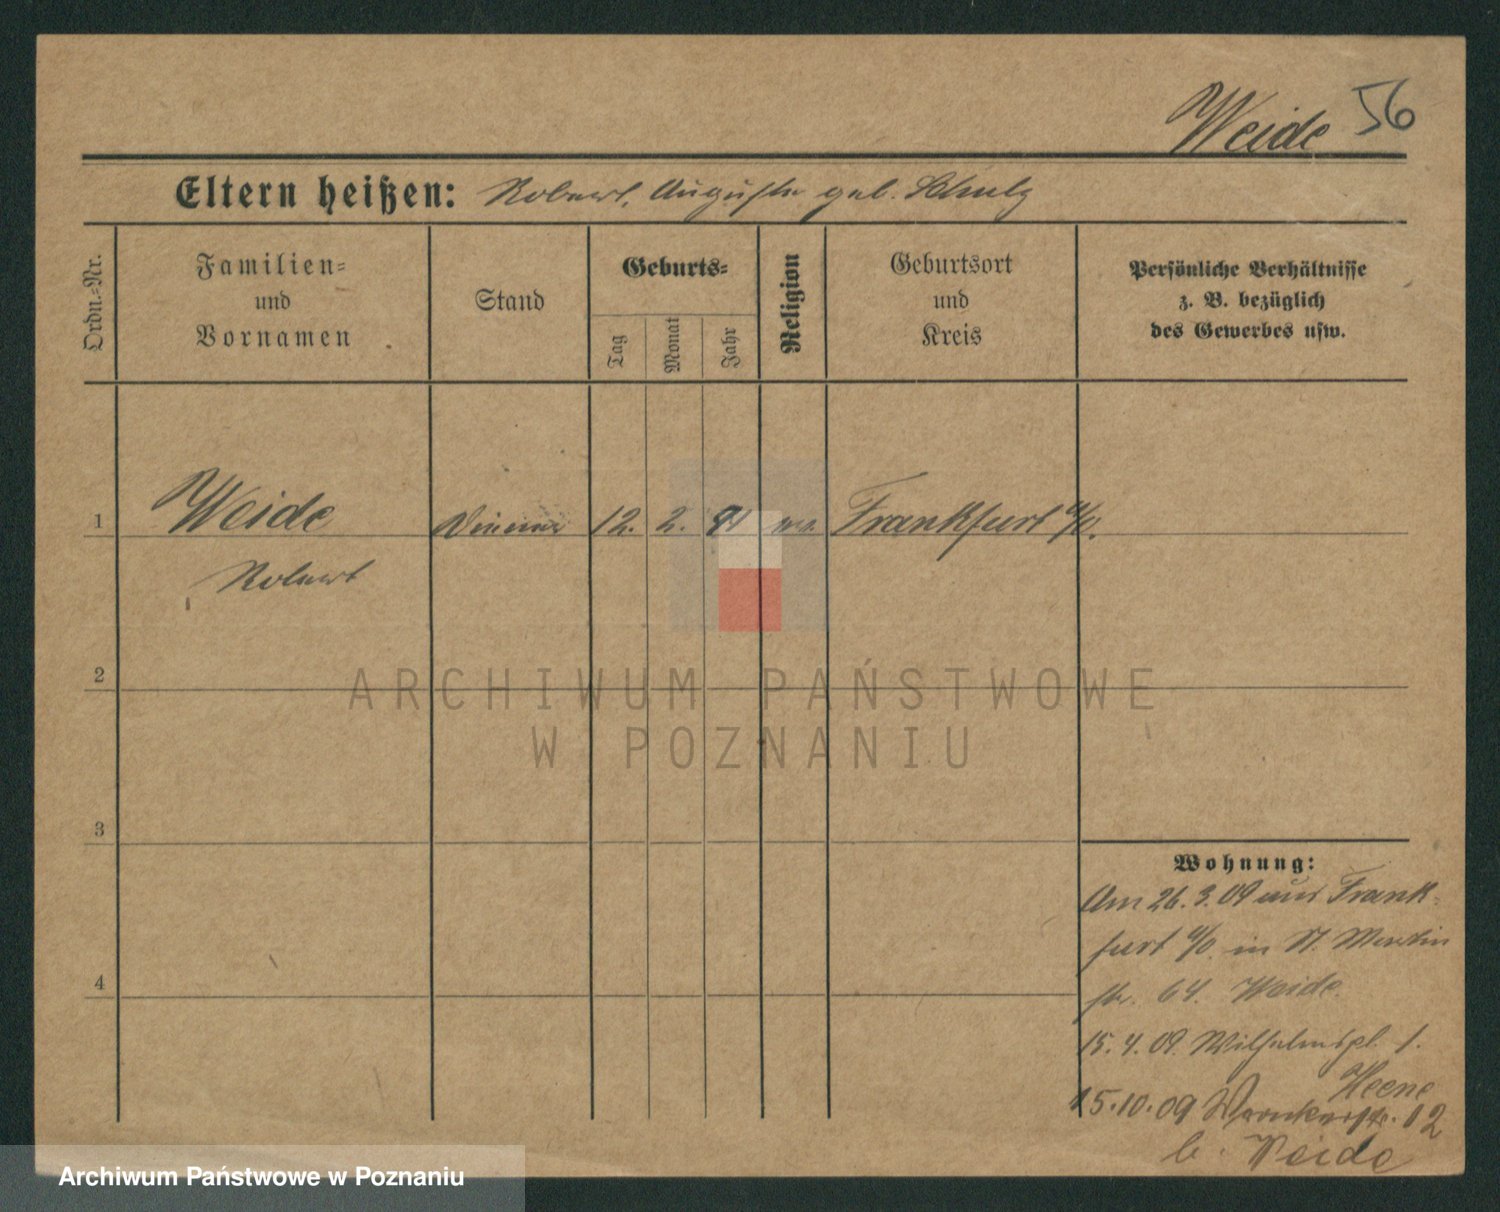 Weide 56
Eltern heißen: Robert, Auguste geb. Schulz
Ordn.-Nr.
Familien-
und
Vornamen
Stand
Geburts-
Tag
Monat
Jahr
Religion
Geburtsort
und
Kreis
Persönliche Verhältnisse
z. B. bezüglich
des Gewerbes usw.
1 Weide 12. 2. 91 Frankfurt a/O.
Robert
2
3
4
Wohnung:
Am 26.3.09 aus Frank-
furt a/O. in St. Martin
str. 64. Weide.
15.4.09. Wilhelmspl. 1.
Heene
15.10.09 12
b. Weide
ARCHIWUM PAŃSTWOWE
W POZNANIU
Archiwum Państwowe w Poznaniu